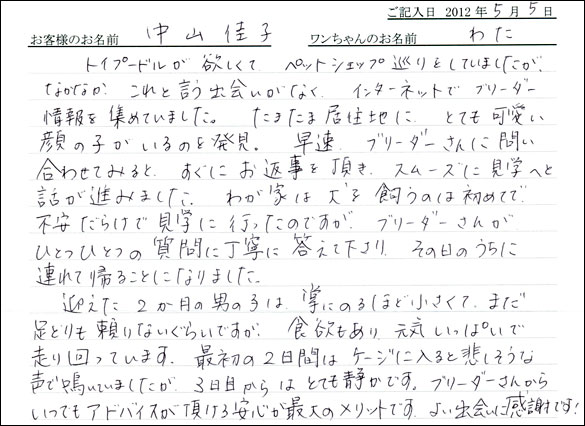 ご記入日 2012年5月5日
お客様のお名前 中山佳子 ワンちゃんのお名前 わた
トイプードルが欲しくて、ペットショップ巡りをしていましたが、
なかなか、これと言う出会いがなく、インターネットでブリーダー
情報を集めていました。たまたま居住地に、とても可愛い
顔の子がいるのを発見。早速、ブリーダーさんに問い
合わせてみると、すぐにお返事を頂き、スムーズに見学へと
話が進みました。わが家は犬を飼うのは初めてで、
不安だらけで見学に行ったのですが、ブリーダーさんが
ひとつひとつの質問に丁寧に答えて下さり、その日のうちに
連れて帰ることになりました。
迎えた2か月の男の子は、掌にのるほど小さくて、まだ
足どりも頼りないぐらいですが、食欲もあり、元気いっぱいで
走り回っています。最初の2日間はケージに入ると悲しそうな
声で鳴いていましたが、3日目からはとても静かです。ブリーダーさんから
いつでもアドバイスが頂ける安心が最大のメリットです。よい出会いに感謝です!